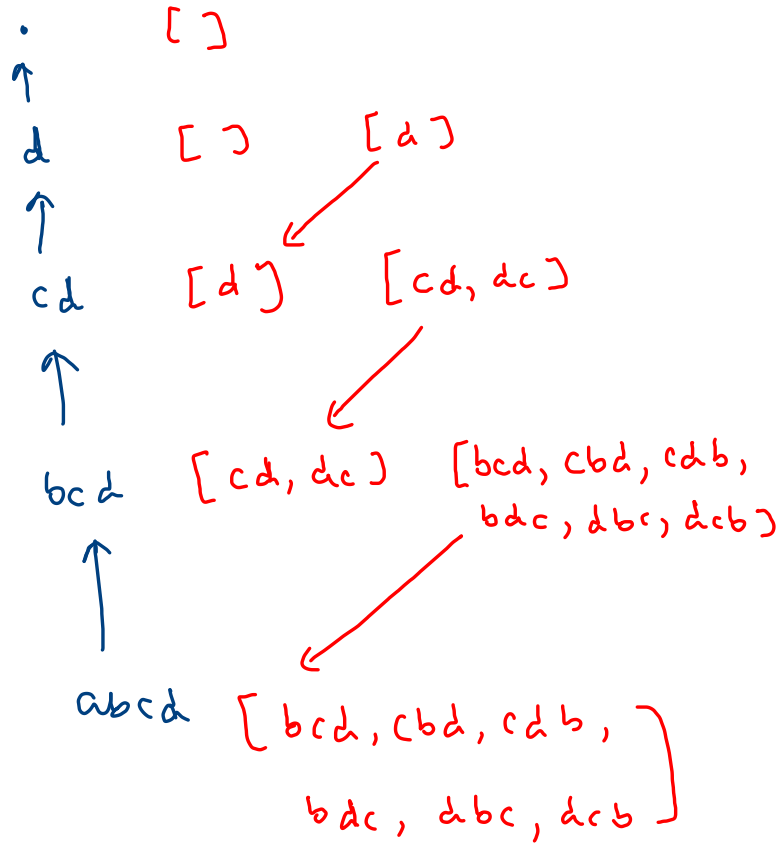 . [ ]
d [ ] [d]
cd [d] [cd, dc]
bcd [cd, dc] [bcd, cbd, cdb,
bdc, dbc, dcb]
abcd [bcd, cbd, cdb,
bdc, dbc, dcb]